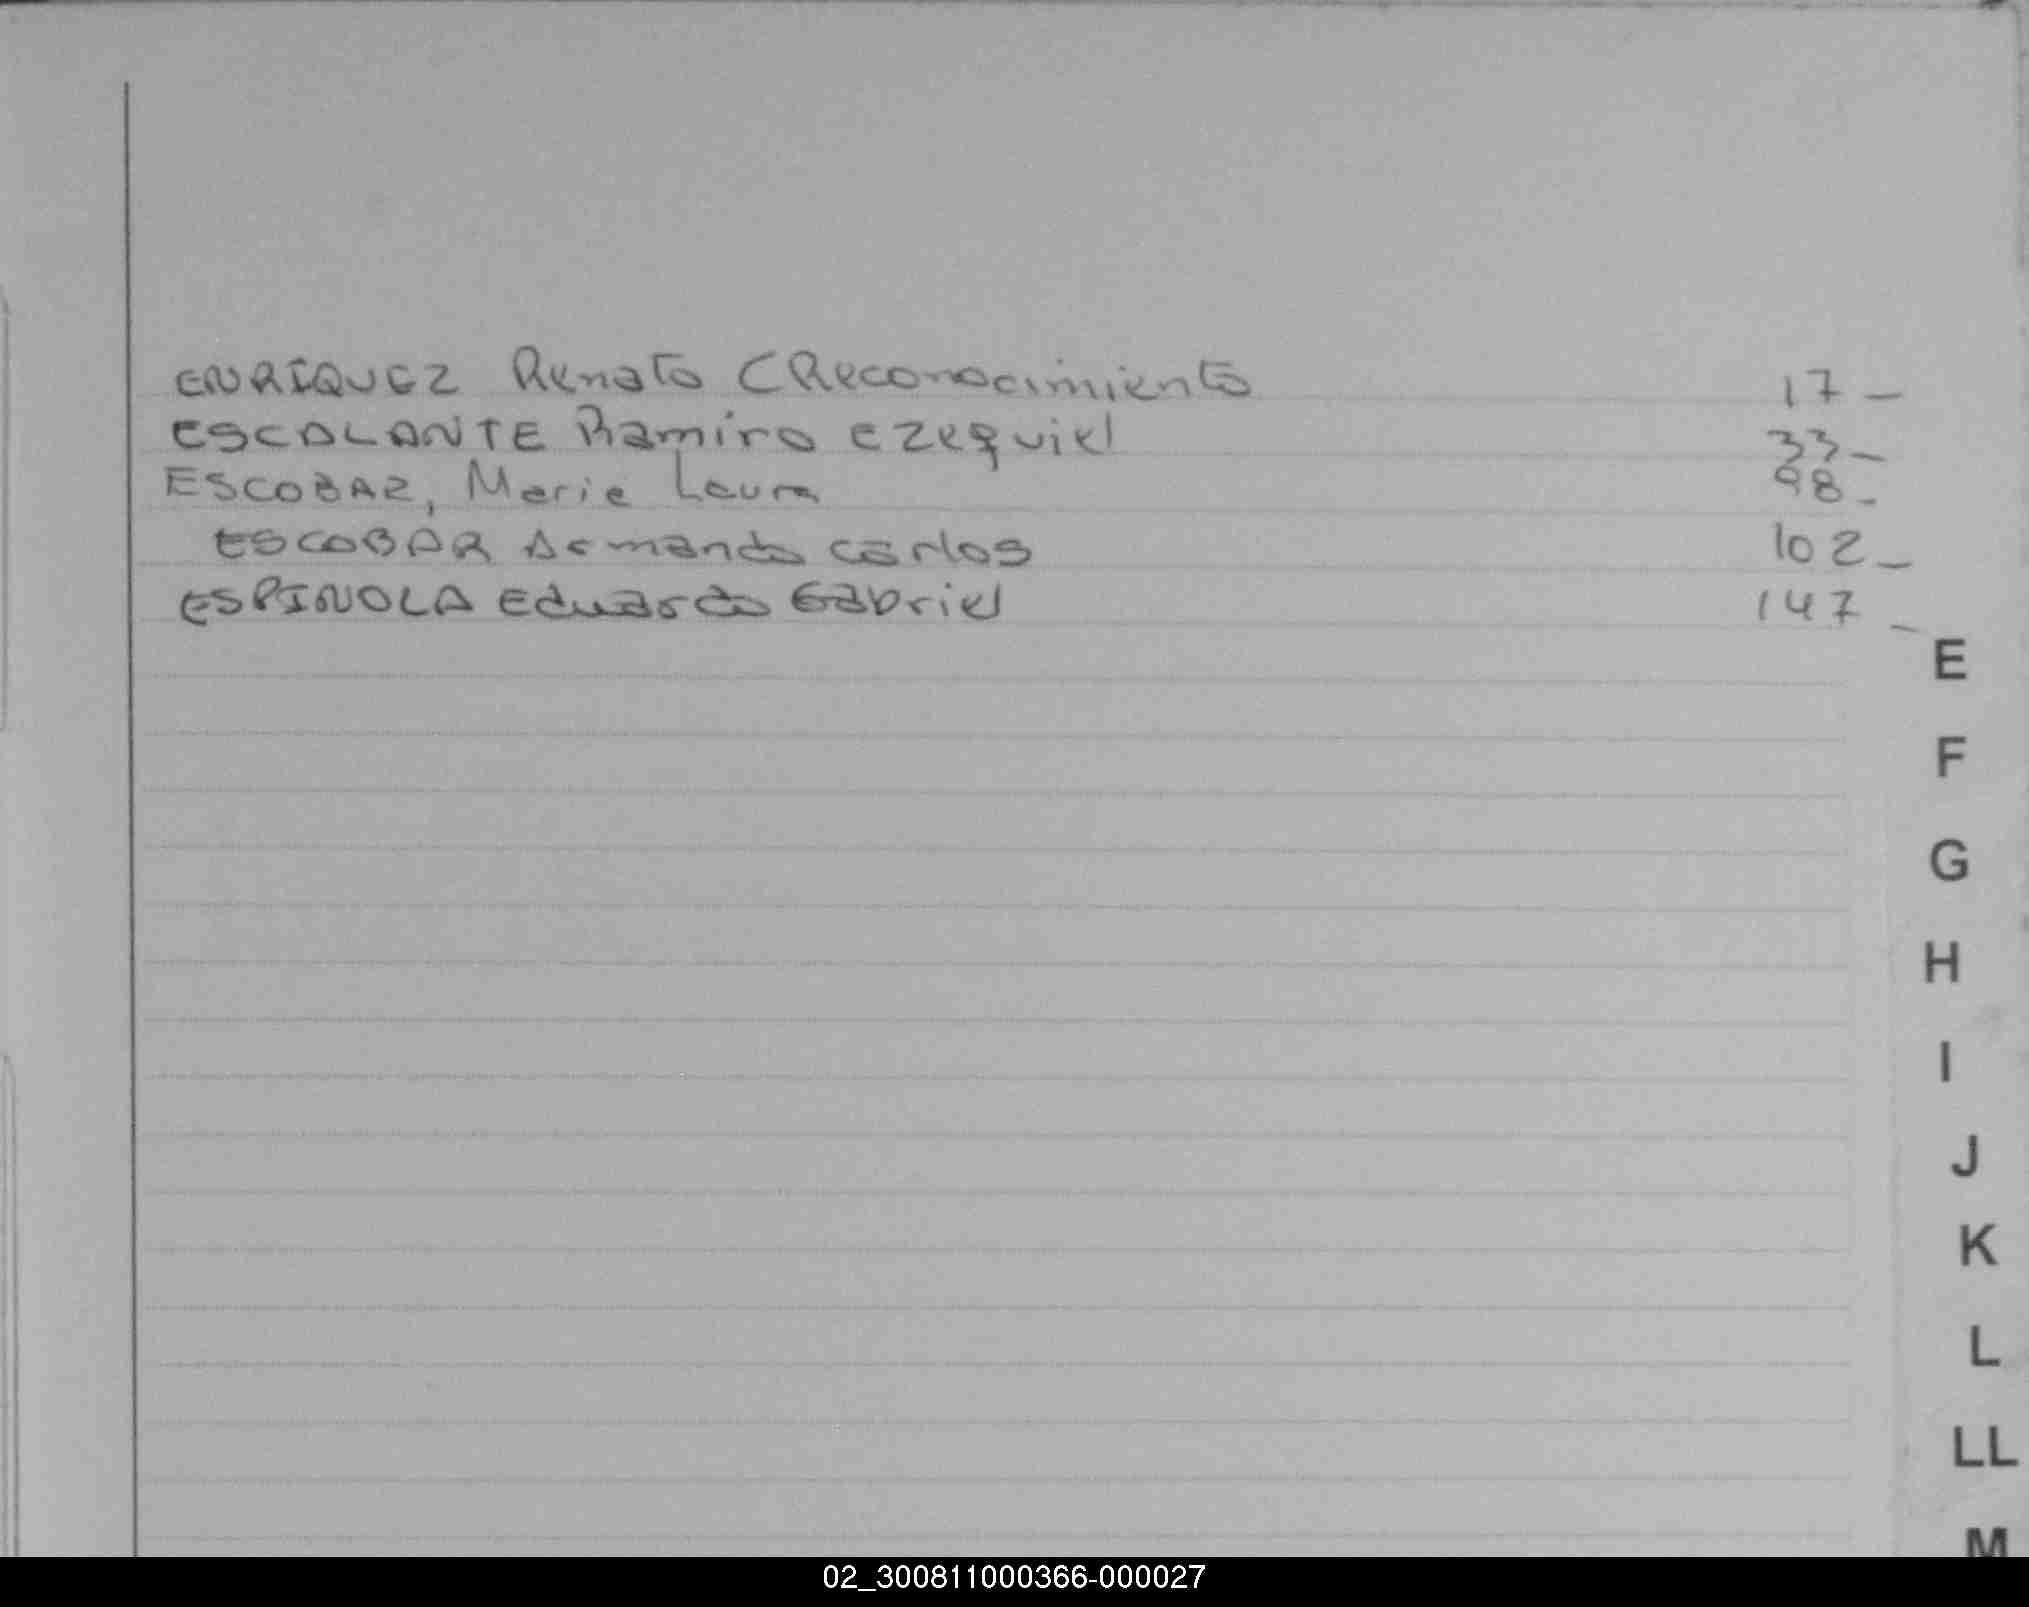 ENRIQUEZ Renato (Reconocimiento 17 _
ESCALANTE Ramiro Ezequiel 33 _
ESCOBAR, Maria Laura 98 _
ESCOBAR Armando Carlos 102 _
ESPINOLA Eduardo Gabriel 147 _
E
F
G
H
I
J
K
L
LL
M
02_300811000366-000027